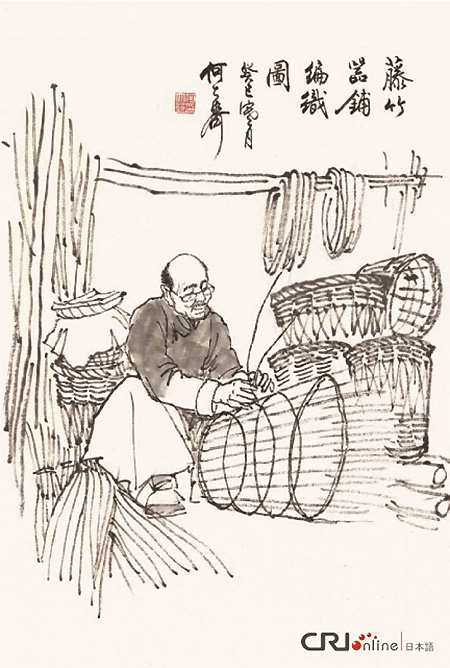 藤竹
器鋪
編織
圖
癸巳月
何大齊
CRIonline 日本語